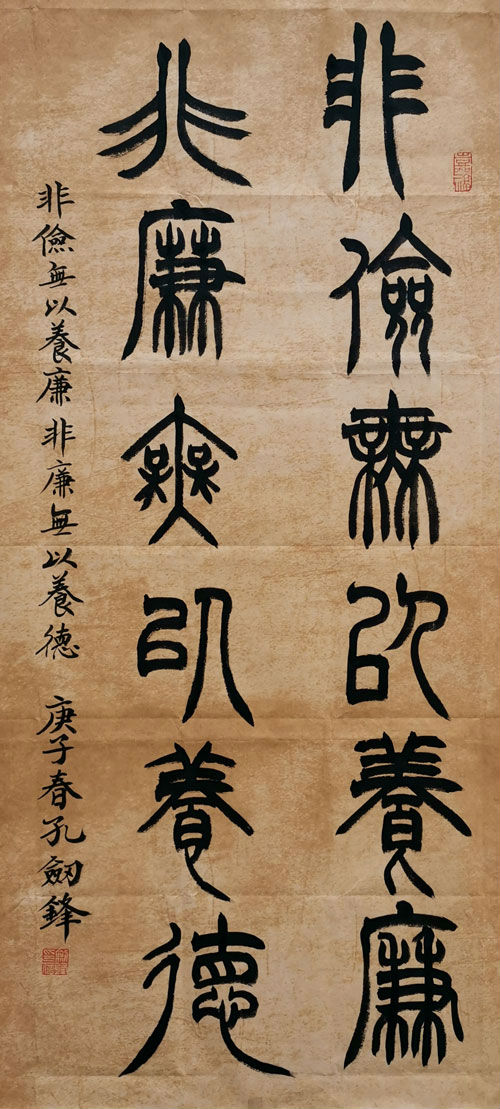 非儉無以養廉
非廉無以養德
非儉無以養廉非廉無以養德 庚子春孔劒鋒